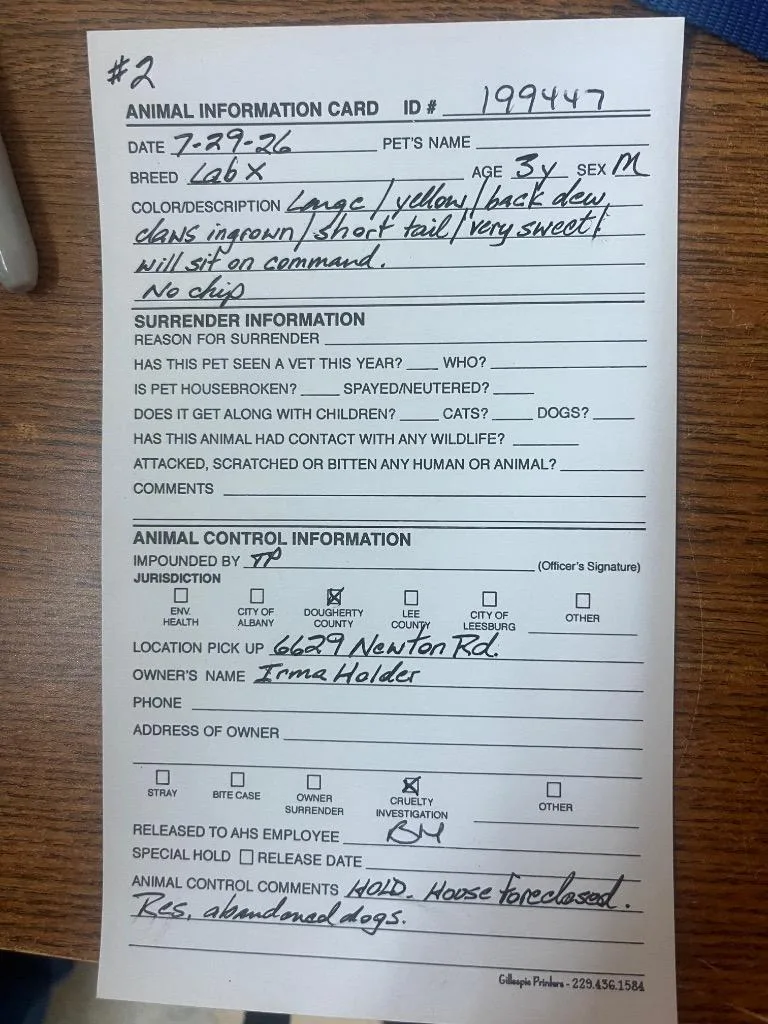 #2
ANIMAL INFORMATION CARD ID # 199447
DATE 7-29-26 PET'S NAME
BREED Lab X AGE 3y SEX M
COLOR/DESCRIPTION Large / yellow / back dew
claws ingrown / short tail / very sweet!
will sit on command.
No chip
SURRENDER INFORMATION
REASON FOR SURRENDER
HAS THIS PET SEEN A VET THIS YEAR? WHO?
IS PET HOUSEBROKEN? SPAYED/NEUTERED?
DOES IT GET ALONG WITH CHILDREN? CATS? DOGS?
HAS THIS ANIMAL HAD CONTACT WITH ANY WILDLIFE?
ATTACKED, SCRATCHED OR BITTEN ANY HUMAN OR ANIMAL?
COMMENTS
ANIMAL CONTROL INFORMATION
IMPOUNDED BY TP (Officer's Signature)
JURISDICTION
ENV. HEALTH CITY OF ALBANY DOUGHERTY COUNTY LEE COUNTY CITY OF LEESBURG OTHER
LOCATION PICK UP 6629 Newton Rd.
OWNER'S NAME Irma Holder
PHONE
ADDRESS OF OWNER
STRAY BITE CASE OWNER SURRENDER CRUELTY INVESTIGATION OTHER
RELEASED TO AHS EMPLOYEE BM
SPECIAL HOLD RELEASE DATE
ANIMAL CONTROL COMMENTS HOLD. House foreclosed.
Res. abandoned dogs.
Gillespie Printers - 229.436.1584